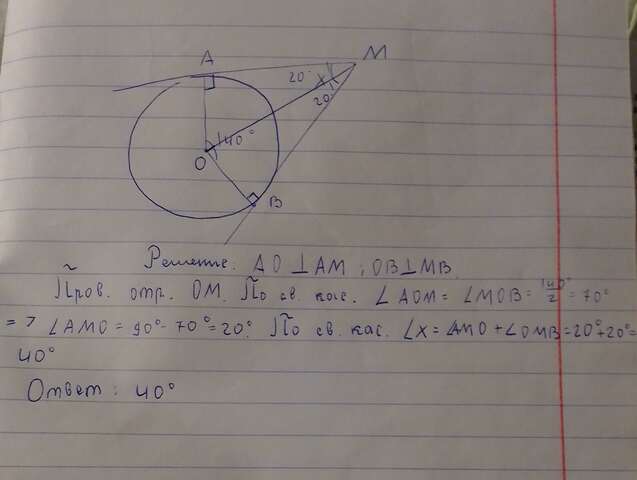 A
M
20°
x
20
140°
O
B
Решение. AO ⊥ AM, OB ⊥ MB.
Пров. отр. OM. По св. кас. ∠AOM = ∠MOB = 140°/2 = 70°
=> ∠AMO = 90° - 70° = 20°. По св. кас. ∠x = ∠AMO + ∠OMB = 20° + 20° =
40°
Ответ: 40°